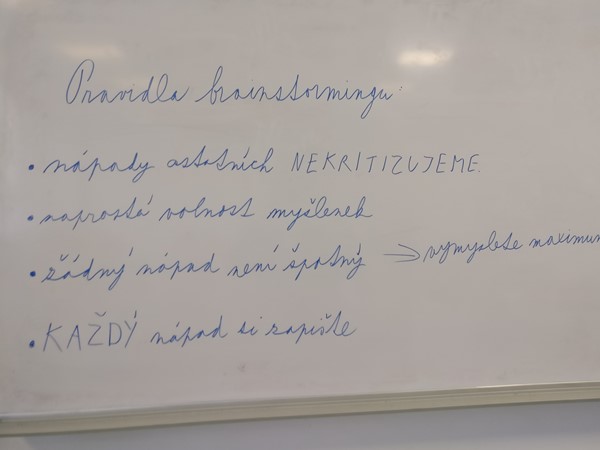 Pravidla brainstormingu:
• nápady ostatních NEKRITIZUJEME.
• naprostá volnost myšlenek
• žádný nápad není špatný → vymyslete maximum
• KAŽDÝ nápad si zapište